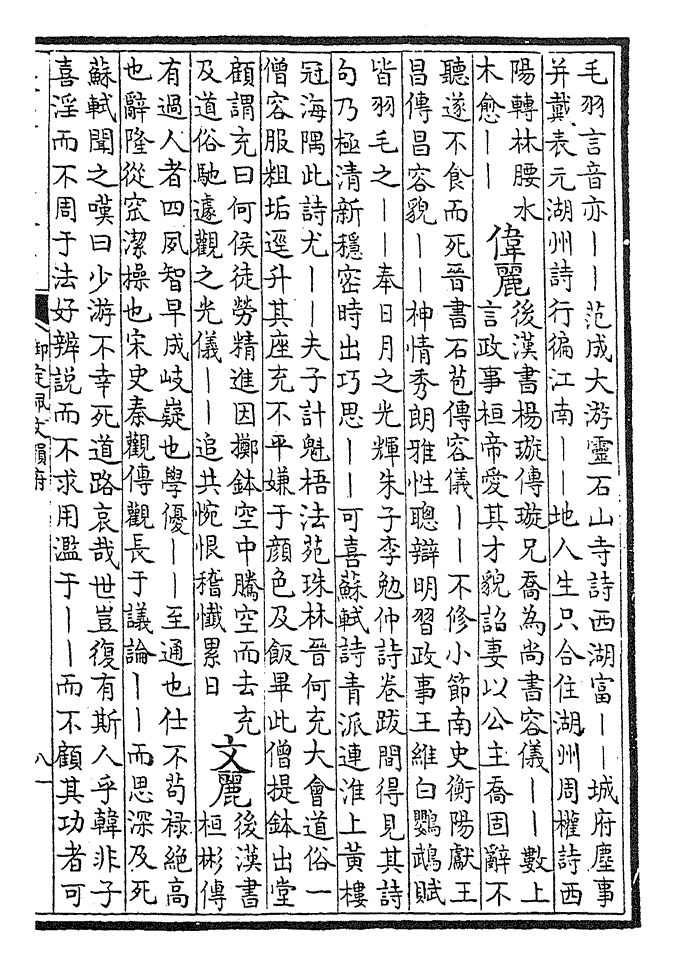 毛羽言音亦丨丨范成大游靈石山寺詩西湖富丨丨城府塵事
并戴表元湖州詩行徧江南丨丨地人生只合住湖州周權詩西
陽轉林腰水
木愈丨丨
偉麗
後漢書楊璇傳璇兄喬為尚書容儀丨丨數上
言政事桓帝愛其才貌詔妻以公主喬固辭不
聽遂不食而死晉書石苞傳容儀丨丨不修小節南史衡陽獻王
昌傳昌容貌丨丨神情秀朗雅性聰辯明習政事王維白鸚鵡賦
皆羽毛之丨丨奉日月之光輝朱子李勉仲詩卷跋間得見其詩
句乃極清新穩密時出巧思丨丨可喜蘇軾詩青派連淮上黃樓
冠海隅此詩尤丨丨夫子計魁梧法苑珠林晉何充大會道俗一
僧容服粗垢逕升其座充不平嫌于顔色及飯畢此僧提鉢出堂
顧謂充曰何侯徒勞精進因擲鉢空中騰空而去充
及道俗馳遽觀之光儀丨丨追共惋恨稽懺累日
文麗
後漢書
桓彬傳
有過人者四夙智早成岐嶷也學優丨丨至通也仕不苟祿絕高
也辭隆從窊潔操也宋史秦觀傳觀長于議論丨丨而思深及死
蘇軾聞之嘆曰少游不幸死道路哀哉世豈復有斯人乎韓非子
喜淫而不周于法好辨說而不求用濫于丨丨而不顧其功者可
御定佩文韻府